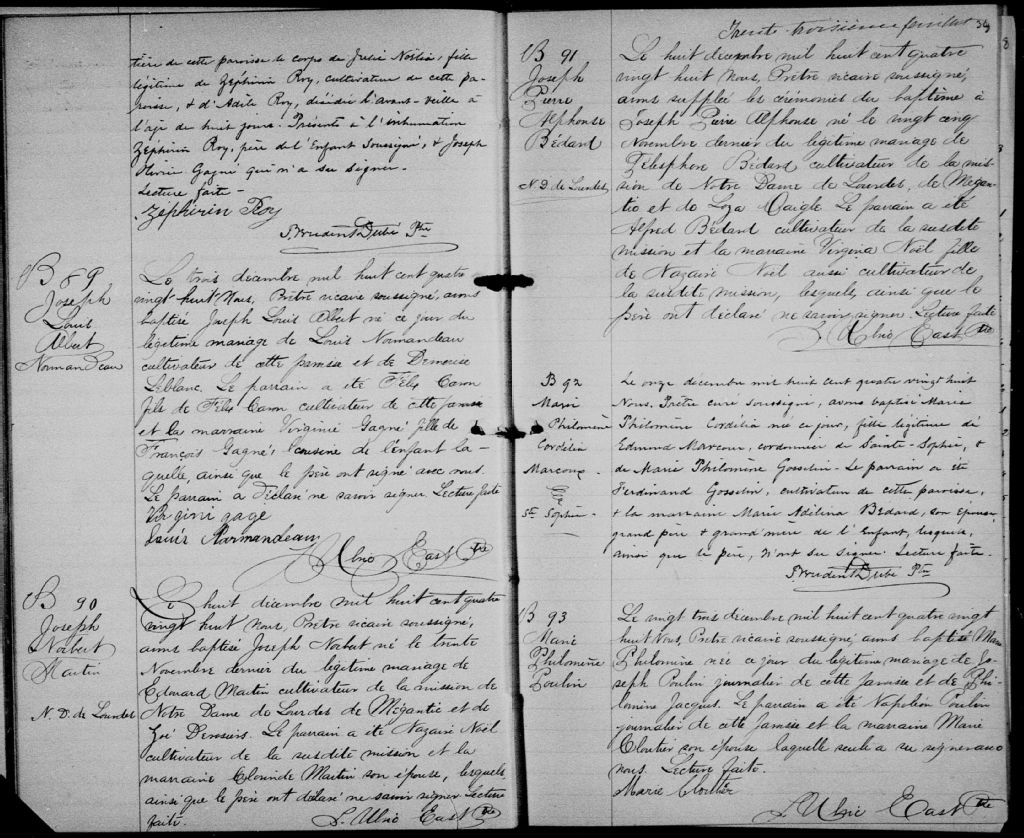 tière de cette paroisse le corps de Julie Noëlia, fille
légitime de Zéphirin Roy, cultivateur de cette pa-
roisse, & d'Adèle Roy, décédée l'avant-veille à
l'âge de huit jours. Présents à l'inhumation
Zéphirin Roy, père de l'Enfant soussigné, & Joseph
Gagné qui n'a su signer.
Lecture faite -
Zéphirin Roy
J. Prudent Dubé Ptre
B 89
Joseph
Louis
Albert
Normandeau
Le trois decembre mil huit cent quatre
vingt huit Nous, Prêtre vicaire soussigné, avons
baptisé Joseph Louis Albert né ce jour du
légitime mariage de Louis Normandeau
cultivateur de cette paroisse et de Demerise
Leblanc. Le parrain a été Félix Caron
fils de Félix Caron cultivateur de cette paroisse
et la marraine Virginie Gagné fille de
François Gagné, cousine de l'enfant la-
quelle, ainsi que le père ont signé avec nous.
Le parrain a déclaré ne savoir signer. Lecture faite
Virgini gage
Louis Normandeau
J. Ulric East Ptre
B 90
Joseph
Norbert
Martin
N. D. de Lourdes
Le huit décembre mil huit cent quatre
vingt huit nous, Prêtre vicaire soussigné,
avons baptisé Joseph Norbert né le trente
Novembre dernier du légitime mariage de
Edouard Martin cultivateur de la mission de
Notre Dame de Lourdes de Mégantic et de
Zoé Derosiers. Le parrain a été Nazaire Noël
cultivateur de la susdite mission et la
marraine Clorinde Martin son épouse, lesquels
ainsi que le père ont déclaré ne savoir signer Lecture
faite.
J. Ulric East Ptre
Trente-troisième feuillet 34
B 91
Joseph
Pierre
Alphonse
Bédard
N. D. de Lourdes
Le huit decembre mil huit cent quatre
vingt huit Nous, Prêtre vicaire soussigné,
avons suppléé les cérémonies du baptême à
Joseph Pierre Alphonse né le vingt cinq
Novembre dernier du légitime mariage de
Télesphore Bédard cultivateur de la mis-
sion de Notre Dame de Lourdes, de Mégan-
tic et de Daigle. Le parrain a été
Alfred Bédard cultivateur de la susdite
mission et la marraine Virginia Noël fille
de Nazaire Noël aussi cultivateur de
la susdite mission, lesquels, ainsi que le
père ont déclaré ne savoir signer. Lecture faite
J. Ulric East Ptre
B 92
Marie
Philomène
Cordélia
Marcoux -
St Sophie -
Le onze décembre mil huit cent quatre vingt huit
Nous, Prêtre curé soussigné, avons baptisé Marie
Philomène Cordélia née ce jour, fille légitime de
Edmund Marcoux, cordonnier de Sainte-Sophie, &
de Marie Philomène Gosselin - Le parrain a été
Ferdinand Gosselin, cultivateur de cette paroisse,
& la marraine Marie Adélina Bédard, son Epouse
grand père & grand'mère de l'Enfant, lesquels,
ainsi que le père, n'ont su signer. Lecture faite.
J. Prudent Dubé Ptre
B 93
Marie
Philomène
Poulin
Le vingt trois decembre mil huit cent quatre vingt
huit Nous, Prêtre vicaire soussigné, avons baptisé Marie
Philomène née ce jour du légitime mariage de Jo-
seph Poulin journalier de cette paroisse et de Phi-
lomène Jacques. Le parrain a été Napoléon Poulin
journalier de cette paroisse et la marraine Marie
Cloutier son épouse laquelle seule a su signer avec
nous. Lecture faite.
Marie Cloutier
J. Ulric East Ptre